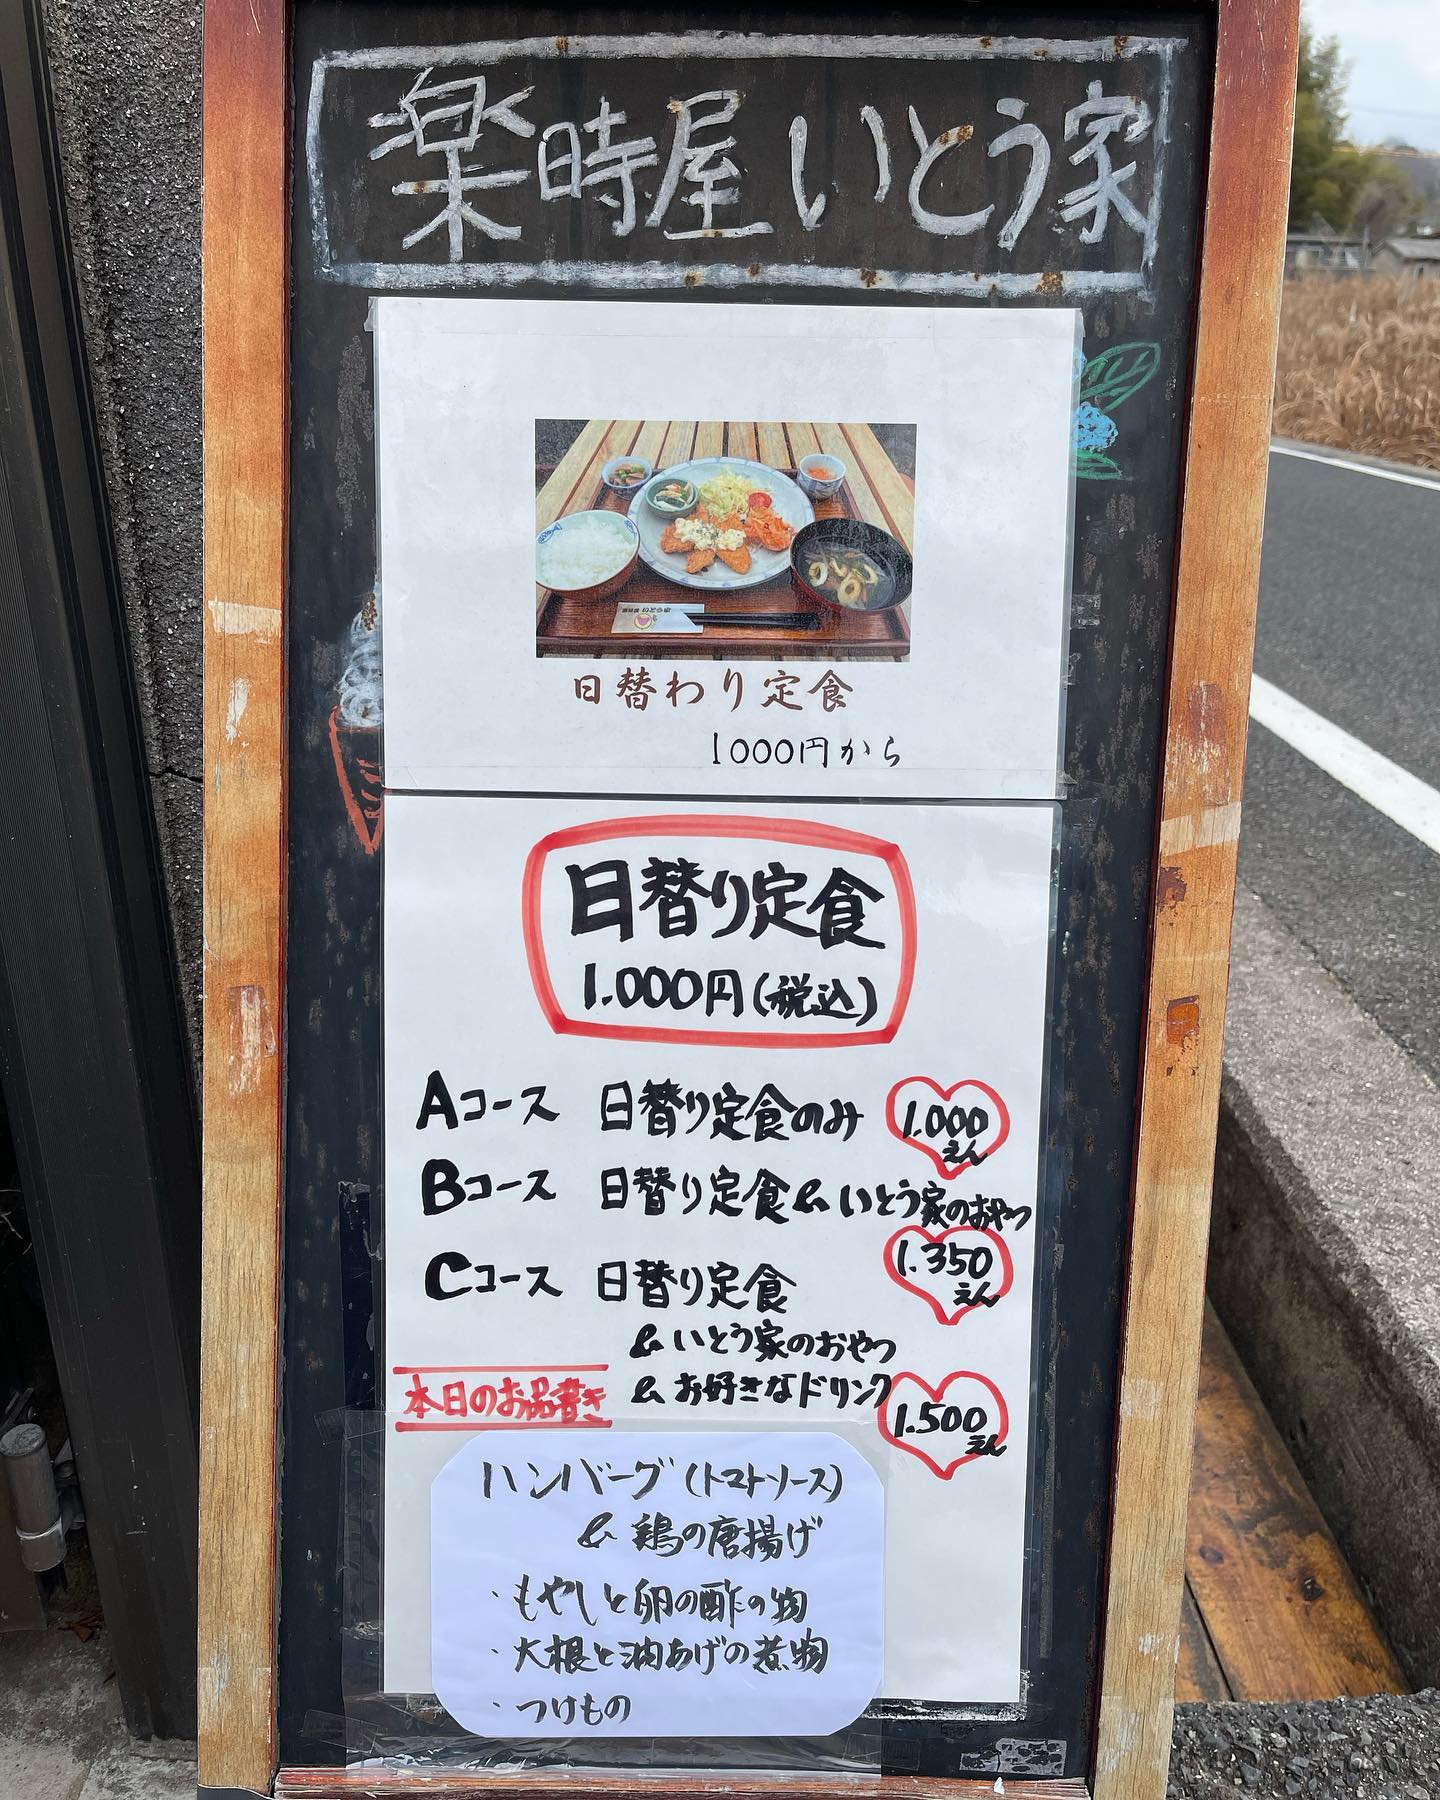 楽時屋いとう家
日替わり定食
1000円から
日替り定食
1.000円(税込)
Aコース 日替り定食のみ 1.000えん
Bコース 日替り定食&いとう家のおやつ
1.350えん
Cコース 日替り定食
&いとう家のおやつ
&お好きなドリンク 1.500えん
本日のお品書き
ハンバーグ(トマトソース)
& 鶏の唐揚げ
・もやしと卵の酢の物
・大根と油あげの煮物
・つけもの